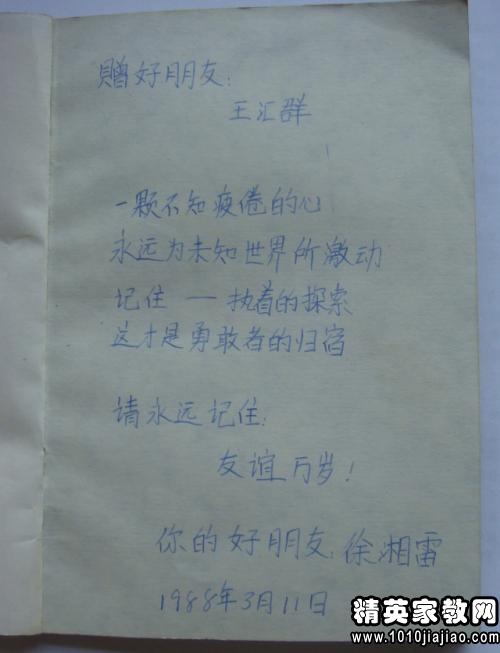 贈好朋友：
王汇群
一颗不知疲倦的心
永远为未知世界所激动
记住 — 执着的探索
这才是勇敢者的归宿
请永远记住：
友谊万岁！
你的好朋友 徐湘雷
1988年3月11日
精英家教网
www.1010jiajiao.com